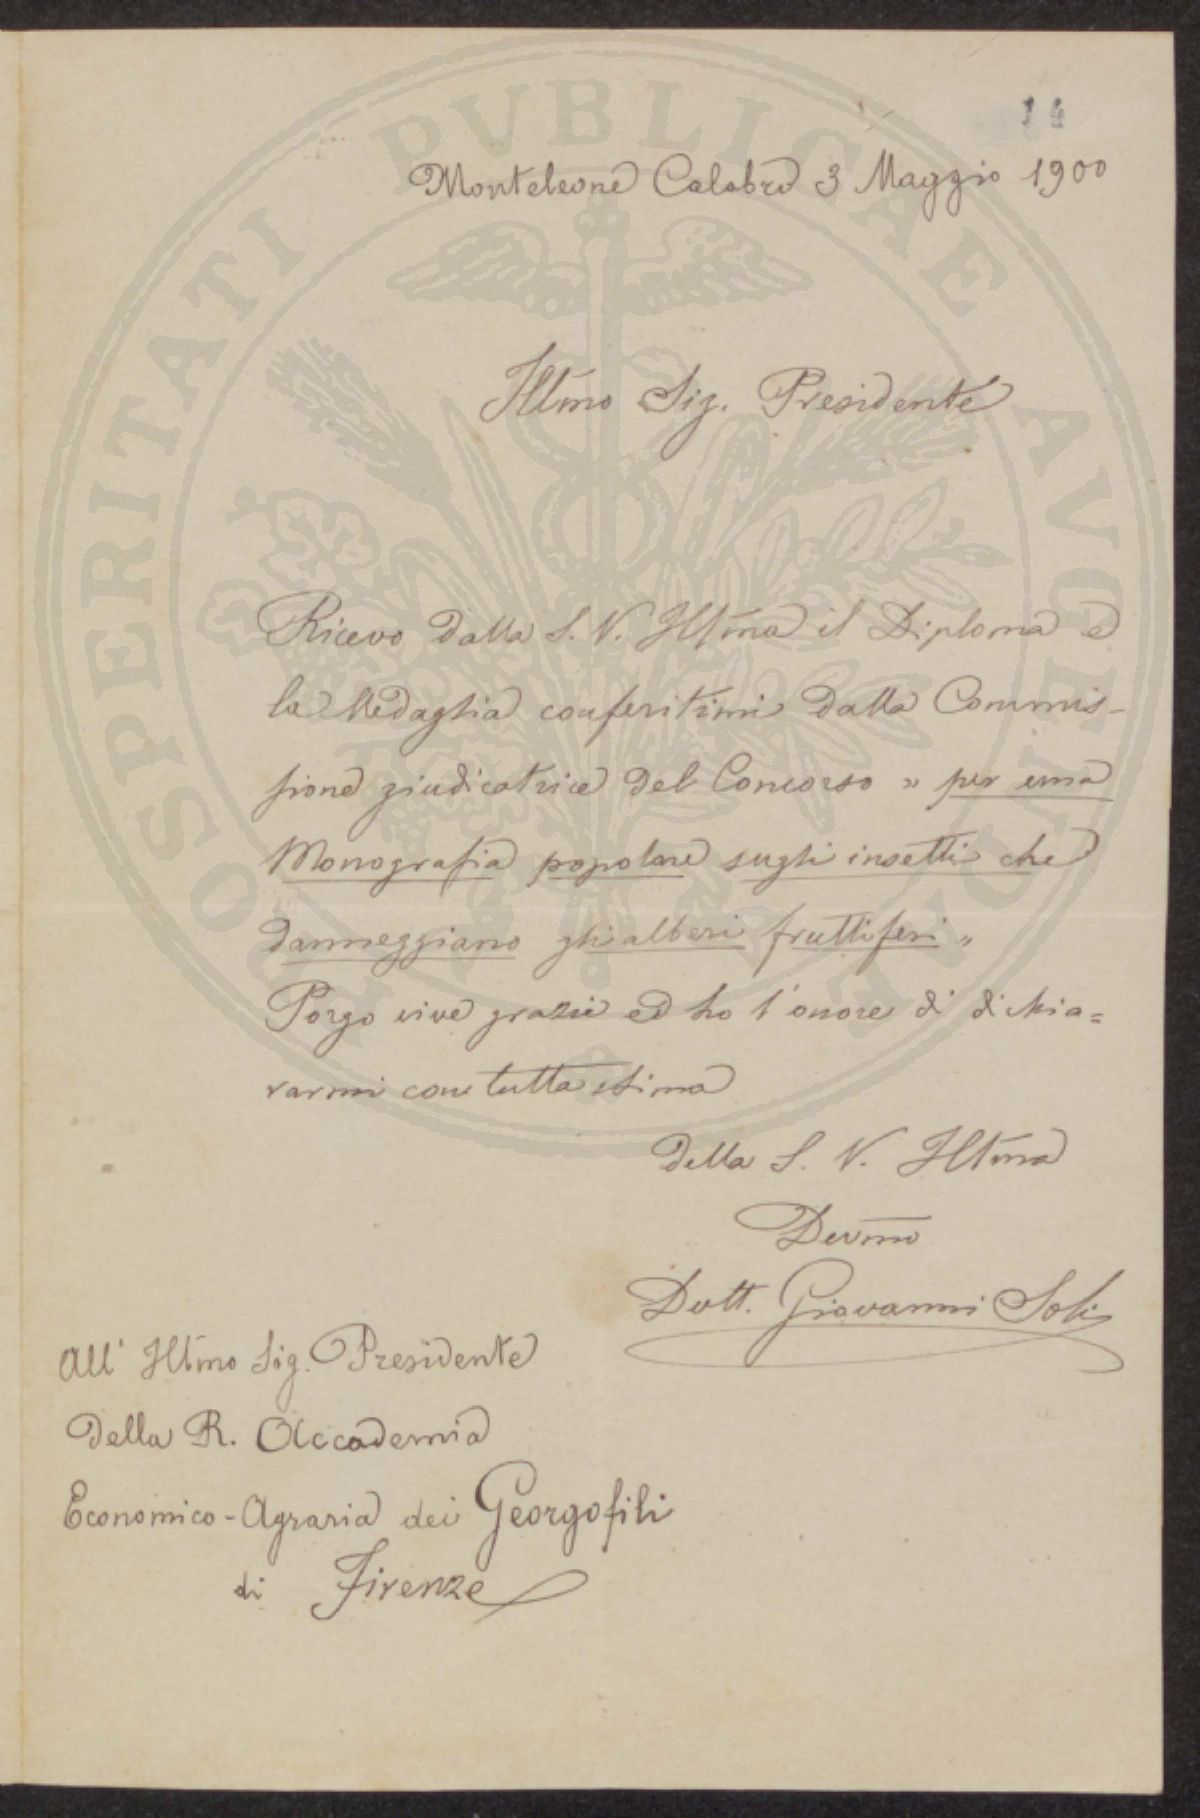 14
Monteleone Calabro 3 Maggio 1900
Illmo Sig. Presidente
Ricevo dalla S. V. Illma il Diploma e
la Medaglia conferitimi dalla Commis-
sione giudicatrice del Concorso „ per una
Monografia popolare sugli insetti che
danneggiano gli alberi fruttiferi „
Porgo vive grazie ed ho l'onore di dichia=
rarmi con tutta stima
della S. V. Illma
Devmo
Dott. Giovanni Soli
All' Illmo Sig. Presidente
della R. Accademia
Economico-Agraria dei Georgofili
di Firenze
PROSPERITATI PVBLICAE AVGENDAE